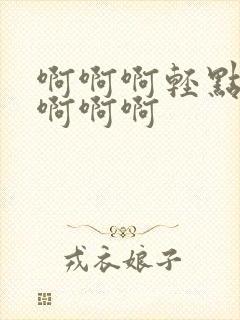 啊啊啊輕點
啊啊啊
戎衣娘子